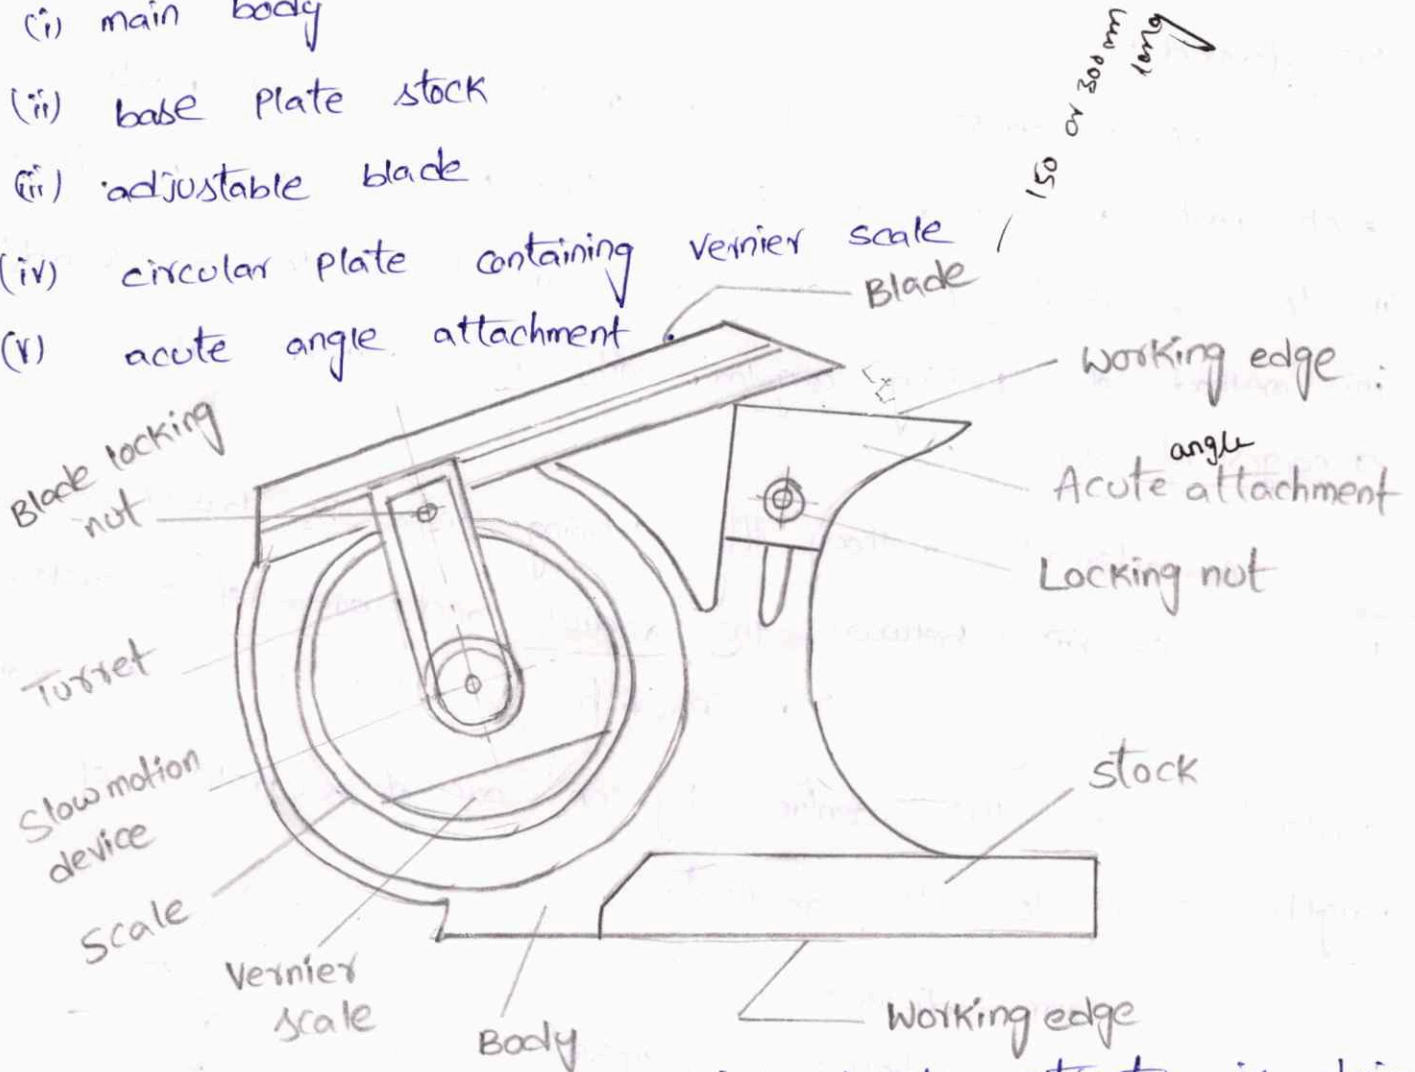 (i) main body
(ii) base plate stock
(iii) adjustable blade
(iv) circular plate containing vernier scale
(v) acute angle attachment
150 or 300 mm
long
Blade
Working edge
Blade locking
nut
angle
Acute attachment
Locking nut
Turret
Slow motion
device
stock
Scale
Vernier
scale
Body
Working edge